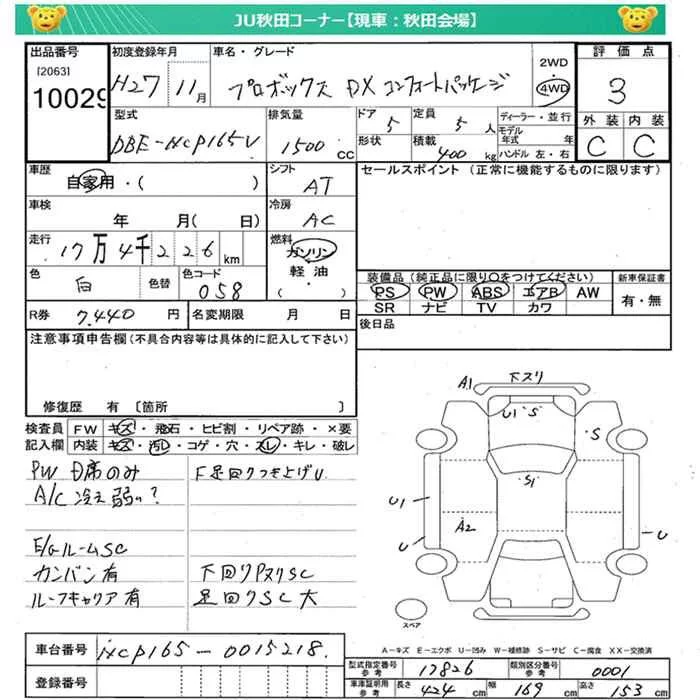 JU秋田コーナー【現車：秋田会場】
出品番号 初度登録年月 車名・グレード 2WD 4WD 評価点
[2063]
10029 H27 11月 プロボックス DX コンフォートパッケージ 3
型式 排気量 ドア 定員 ディーラー・並行 外装 内装
DBE-NCP165V 1500 CC 5 5人 モデル年式 年 C C
形状 積載 400kg ハンドル 左・右
車歴 自家用・( ) シフト AT セールスポイント (正常に機能するものに限ります)
車検 年 月( 日) 冷房 AC
走行 17万4千226km 燃料 ガソリン 軽油・( )
色 白 色替 色コード 058
装備品 (純正品に限り○をつけてください) 新車保証書
PS PW ABS エアB AW 有・無
SR ナビ TV カワ
R券 7,440円 名変期限 月 日 後日品
注意事項申告欄(不具合内容等は具体的に記入して下さい)
修復歴 有〔箇所 〕
検査員記入欄 FW キズ・飛石・ヒビ割・リペア跡・×要
内装 キズ・汚レ・コゲ・穴・スレ・キレ・破レ
PW D席のみ F足回りつき上げU
A/C 冷え弱い?
E/GルームSC
カンバン有 下回りPヌリSC
ルーフキャリア有 足回りSC大
A1 下ヌリ
U1 S
S
S1
U1
A2
U
U
スペア
A－キズ E－エクボ U－凹み W－補修跡 S－サビ C－腐食 XX－交換済
車台番号 NCP165-0015218
登録番号
型式指定番号 参考 17826 類別区分番号 参考 0001
車庫証明用 参考 長さ 424cm 幅 169cm 高さ 153cm